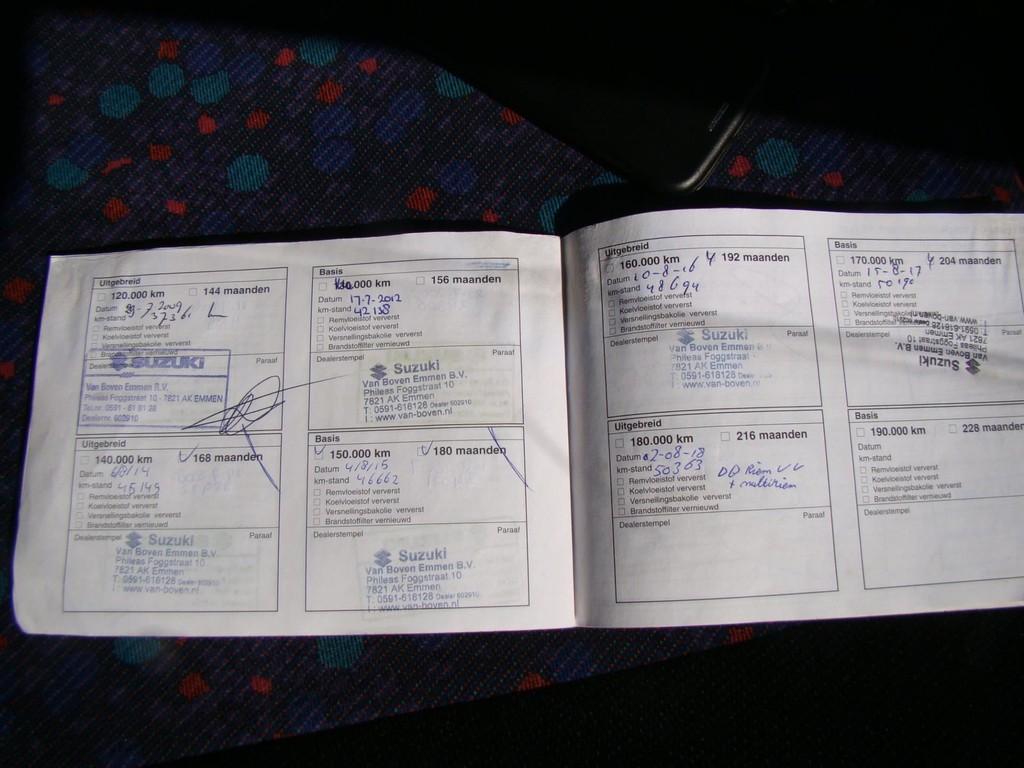 Uitgebreid
120.000 km 144 maanden
Datum 7-2009
km-stand
Remvloeistof ververst
Koelvloeistof ververst
Versnellingsbakolie ververst
Brandstoffilter vernieuwd
Paraaf
SUZUKI
Van Boven Emmen B.V.
Phileas Foggstraat 10 - 7821 AK EMMEN
Tel.nr. 0591 - 61 81 28
Dealernr. 602910
Basis
.000 km 156 maanden
Datum 17-7-2012
km-stand 42138
Remvloeistof ververst
Koelvloeistof ververst
Versnellingsbakolie ververst
Brandstoffilter vernieuwd
Dealerstempel Paraaf
Suzuki
Van Boven Emmen B.V.
Phileas Foggstraat 10
7821 AK Emmen
T: 0591-618128 Dealer 602910
I: www.van-boven.nl
Uitgebreid
140.000 km 168 maanden
Datum 6/8/14
km-stand 45149
Remvloeistof ververst
Koelvloeistof ververst
Versnellingsbakolie ververst
Brandstoffilter vernieuwd
Dealerstempel Paraaf
Suzuki
Van Boven Emmen B.V.
Phileas Foggstraat 10
7821 AK Emmen
T: 0591-618128 Dealer 602910
I: www.van-boven.nl
Basis
150.000 km 180 maanden
Datum 4/8/15
km-stand 46662
Remvloeistof ververst
Koelvloeistof ververst
Versnellingsbakolie ververst
Brandstoffilter vernieuwd
Dealerstempel Paraaf
Suzuki
Van Boven Emmen B.V.
Phileas Foggstraat 10
7821 AK Emmen
T: 0591-618128 Dealer 602910
I: www.van-boven.nl
Uitgebreid
160.000 km 192 maanden
Datum 10-8-16
km-stand 48694
Remvloeistof ververst
Koelvloeistof ververst
Versnellingsbakolie ververst
Brandstoffilter vernieuwd
Dealerstempel Paraaf
Suzuki
Van Boven Emmen B.V.
Phileas Foggstraat 10
7821 AK Emmen
T: 0591-618128
I: www.van-boven.nl
Basis
170.000 km 204 maanden
Datum 15-8-17
km-stand 50190
Remvloeistof ververst
Koelvloeistof ververst
Versnellingsbakolie
Brandstoffilter
Dealerstempel
Suzuki
Van Boven Emmen B.V.
Phileas Foggstraat 10
7821 AK Emmen
T: 0591-618128
I: www.van-boven.nl
Uitgebreid
180.000 km 216 maanden
Datum 02-08-18
km-stand 50363
Remvloeistof ververst
Koelvloeistof ververst
Versnellingsbakolie ververst
Brandstoffilter vernieuwd
Riem VV
+ multiriem
Dealerstempel Paraaf
Basis
190.000 km 228 maanden
Datum
km-stand
Remvloeistof ververst
Koelvloeistof ververst
Versnellingsbakolie ververst
Brandstoffilter vernieuwd
Dealerstempel